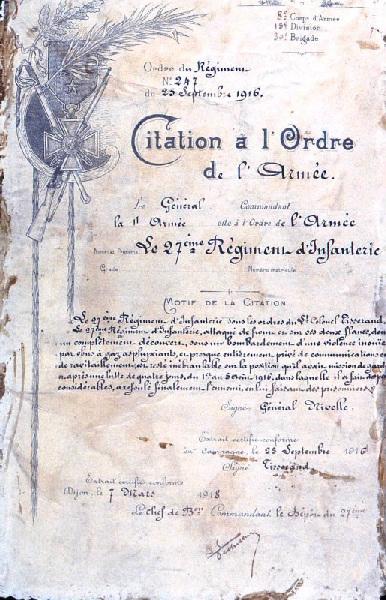 8e Corps d'Armée
15e Division
30e Brigade
Ordre du Régiment
No 247
du 23 Septembre 1916.
Citation à l'Ordre
de l'Armée.
Le Général Commandant
la IIe Armée cite à l'Ordre de l'Armée
Le 27ème Régiment d'Infanterie
Grade Numéro matricule
Motif de la Citation
Le 27ème Régiment d'Infanterie sous les ordres du Lt Colonel Tisserand.
Le 27ème Régiment d'Infanterie, attaqué de front et sur ses deux flancs, dans
un complètement découvert, sous un bombardement d'une violence inouïe
par obus à gaz asphyxiants, et presque entièrement privé de communications
de ravitaillement, est resté inébranlable sur la position qu'il avait mission de garder
a après une lutte de quatre jours, du 1er au 5 Août 1916, dans laquelle il a fait des pertes
considérables, a refoulé finalement l'ennemi, en lui faisant des prisonniers.
Signé: Général Nivelle.
Extrait certifié conforme
au Campagne, le 23 Septembre 1916
Signé Tisserand
Extrait certifié conforme
Dijon, le 7 Mars 1918
Le Chef de Bon Commandant le Dépôt du 27ème